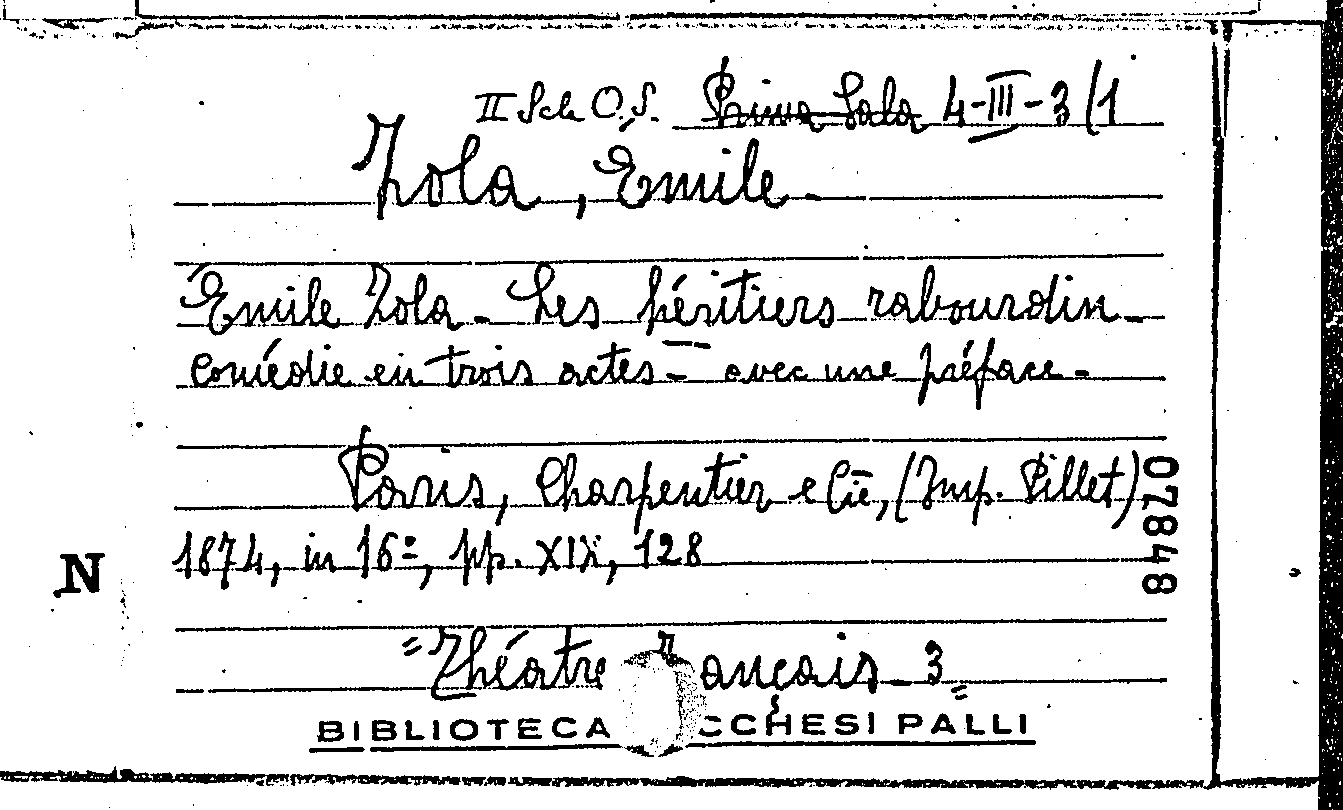 II Sch O.S. Prima Sala 4-III-3/1
Zola, Émile -
Émile Zola - Les héritiers rabourdin -
comédie en trois actes - avec une préface -
Paris, Charpentier e Cie, (Imp. Pillet)
1874, in 16º, pp. XIX, 128
07848
N
"Théatre français - 3"
BIBLIOTECA LUCCHESI PALLI